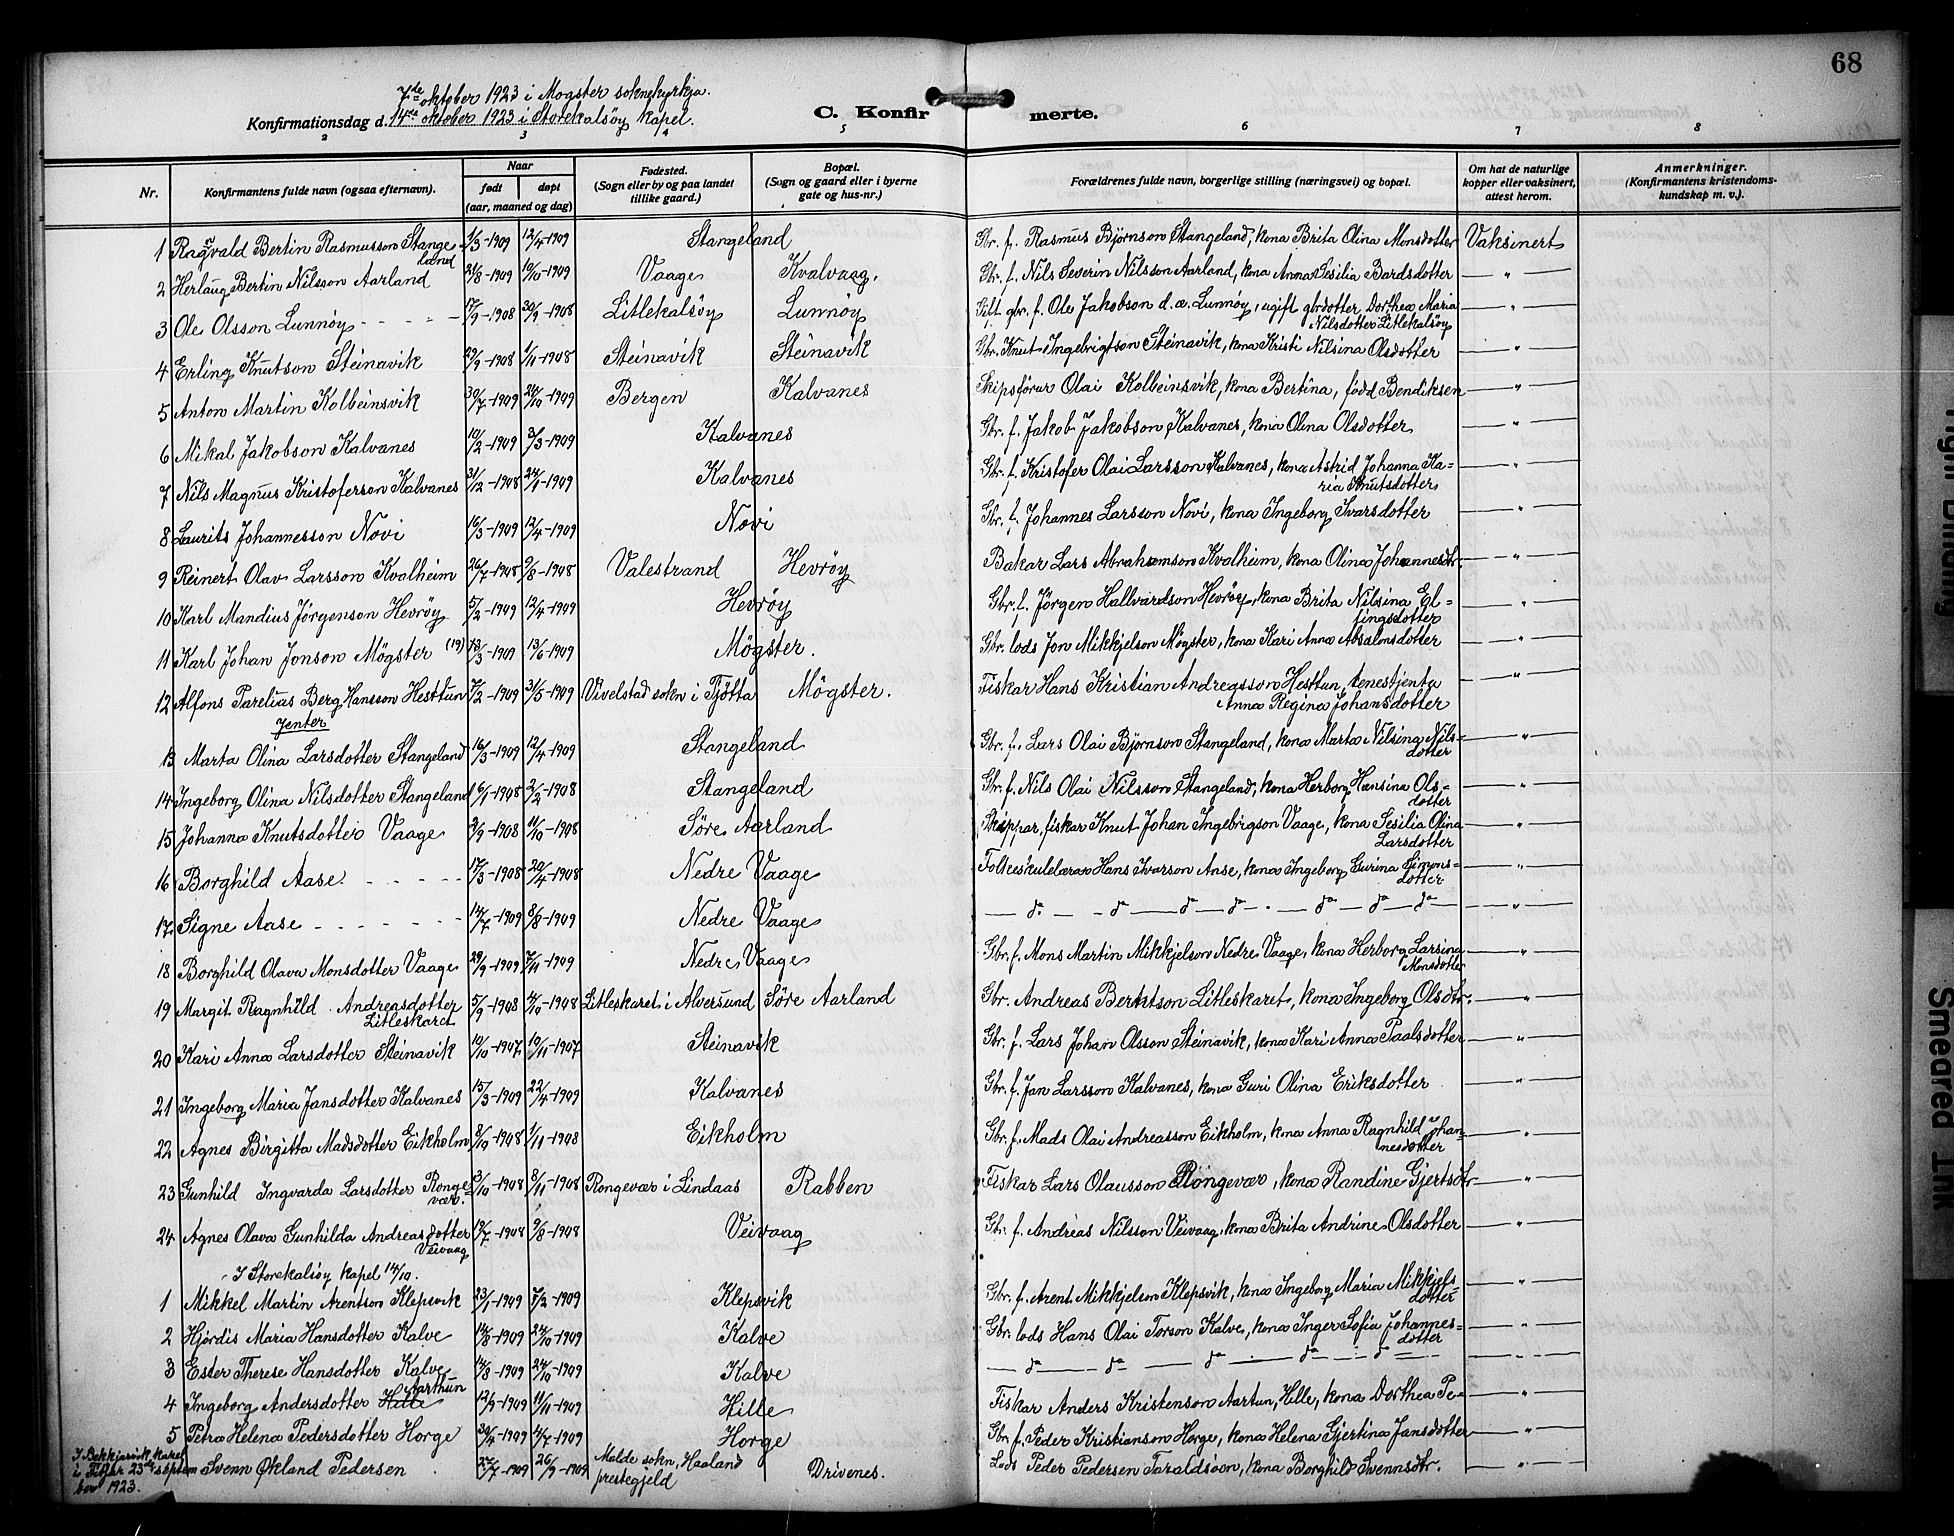 68
7de oktober 1923 i Møgster soknekyrkja.
Konfirmationsdag d. 14de oktober 1923 i Storekalsøy kapel.
C. Konfirmerte.
2 3 4 5 6 7 8
Nr. Konfirmantens fulde navn (ogsaa efternavn). Naar født døpt (aar, maaned og dag) Fødested. (Sogn eller by og paa landet tillike gaard.) Bopæl. (Sogn og gaard eller i byerne gate og hus-nr.) Forældrenes fulde navn, borgerlige stilling (næringsvei) og bopæl. Om hat de naturlige kopper eller vaksinert, attest herom. Anmerkninger. (Konfirmantens kristendoms-kundskap m. v.).
1 Ragnvald Bertin Rasmusson Stangeland 1/3-1909 12/4-1909 Stangeland Gbr. f. Rasmus Bjørnson Stangeland, kona Brita Olina Monsdotter Vaksinert
2 Herlaug Bertin Nilsson Aarland 21/8-1909 10/10-1909 Vaage Kvalvaag. Gbr. f. Nils Severin Nilsson Aarland, kona Anna Sesilia Bardsdotter — " —
3 Ole Olsson Lunnøy - - - - 17/9-1908 30/9-1908 Litlekalsøy Lunnøy Gift gbr. f. Ole Jakobson d.æ. Lunnøy, ugift gbrdotter Dorthea Maria Nilsdotter Litlekalsøy — " —
4 Erling Knutson Steinavik 29/9-1908 1/11-1908 Steinavik Steinavik Gbr. Knut Ingebrigtson Steinavik, kona Kristi Nilsina Olsdotter — " —
5 Anton Martin Kolbeinsvik 30/7-1909 24/10-1909 Bergen Kalvanes Skipsførar Olai Kolbeinsvik, kona Bertina, fødd Bendiksen — " —
6 Mikal Jakobson Kalvanes 10/2-1909 3/3-1909 Kalvanes Gbr. f. Jakob Jakobson Kalvanes, kona Olina Olsdotter — " —
7 Nils Magnus Kristoferson Kalvanes 31/12-1908 24/1-1909 Kalvanes Gbr. f. Kristofer Olai Larsson Kalvanes, kona Astrid Johanna Karia Knutsdotter — " —
8 Laurits Johannesson Novi 16/3-1909 12/4-1909 Novi Gbr. f. Johannes Larsson Novi, kona Ingeborg Ivarsdotter — " —
9 Reinert Olav Larsson Kvalheim 26/7-1908 9/8-1908 Valestrand Hevrøy Bakar Lars Abrahamson Kvalheim, kona Olina Johannesdtr. — " —
10 Karl Mandius Jørgenson Hevrøy 5/2-1909 12/4-1909 Hevrøy Gbr. f. Jørgen Hallvardson Hevrøy, kona Brita Nilsina Ellingsdotter — " —
11 Karl Johan Jonson Møgster (19) /3-1909 13/6-1909 Møgster. Gbr. lods Jon Mikkjelson Møgster, kona Kari Anna Absalonsdotter — " —
12 Alfons Parelius Berg Hansson Hesttun 7/2-1909 31/5-1909 Vivelstad sokn i Tjøtta Møgster. Fiskar Hans Kristian Andreasson Hesttun, tenestjenta Anna Regina Johansdotter — " —
Jenter
13 Marta Olina Larsdotter Stangeland 16/3-1909 12/4-1909 Stangeland Gbr. f. Lars Olai Bjørnson Stangeland, kona Marta Nilsina Nilsdotter — " —
14 Ingeborg Olina Nilsdotter Stangeland 6/1-1908 2/2-1908 Stangeland Gbr. f. Nils Olai Nilsson Stangeland, kona Herborg Hansina Olsdotter — " —
15 Johanna Knutsdotter Vaage 3/9-1908 11/10-1908 Søre Aarland Skippar, fiskar Knut Johan Ingebrigson Vaage, kona Sesilia Olina Larsdotter — " —
16 Borghild Aase. - - - - 17/3-1908 20/4-1908 Nedre Vaage Folkeskulelærar Hans Ivarson Aase, kona Ingeborg Gurina Simonsdotter — " —
17 Signe Aase - - - - 14/7-1909 8/8-1909 Nedre Vaage — do — do — do — do — do — do — do — — " —
18 Borghild Olava Monsdotter Vaage 29/9-1909 7/11-1909 Nedre Vaage Gbr. f. Mons Martin Mikkjelson Nedre Vaage, kona Herborg Larsina Monsdotter — " —
19 Margit Ragnhild Andreasdotter Litleskaret 5/9-1908 4/10-1908 Litleskaret i Alversund Søre Aarland Gbr. Andreas Berntson Litleskaret, kona Ingeborg Olsdtr. — " —
20 Kari Anna Larsdotter Steinavik 10/10-1907 10/11-1907 Steinavik Gbr. f. Lars Johan Olsson Steinavik, kona Kari Anna Paalsdotter — " —
21 Ingeborg Maria Jansdotter Kalvanes 15/3-1909 22/4-1909 Kalvanes Gbr. f. Jan Larsson Kalvanes, kona Guri Olina Eriksdotter — " —
22 Agnes Birgitta Madsdotter Eikholm 8/10-1908 1/11-1908 Eikholm Gbr. f. Mads Olai Andreasson Eikholm, kona Anna Ragnhild Johannesdotter — " —
23 Gunhild Ingvarda Larsdotter Rongevær 3/10-1908 8/11-1908 Rongevær i Lindaas Rabben Fiskar Lars Olausson Rongevær, kona Randine Gjertsdtr — " —
24 Agnes Olava Gunhilda Andreasdotter Veivaag 19/7-1908 9/8-1908 Veivaag Gbr. f. Andreas Nilsson Veivaag, kona Brita Andrine Olsdotter — " —
I Storekalsøy kapel 14/10.
1 Mikkel Martin Arentson Klepsvik 23/1-1909 7/2-1909 Klepsvik Gbr. f. Arent Mikkjelson Klepsvik, kona Ingeborg Maria Mikkjelsdotter — " —
2 Hjørdis Maria Hansdotter Kalve 14/8-1909 24/10-1909 Kalve Gbr. lods Hans Olai Torson Kalve, kona Inger Sofia Johannesdotter — " —
3 Ester Therese Hansdotter Kalve 14/8-1909 24/10-1909 Kalve — do — do — do — do — do — — " —
4 Ingeborg Andersdotter Hille Aarthun 12/9-1909 11/11-1909 Hille Fiskar Anders Kristenson Aartun, Hille, kona Dorthea Pe- — " —
5 Petra Helena Pedersdotter Horge 30/4-1909 4/7-1909 Horge Gbr. f. Peder Kristianson Horge, kona Helena Gjertina Jansdotter — " —
I Bekkjarvik kapel i Fitjar 23de september 1923. Svenn Økland Pedersen 27/7-1909 26/9-1909 Malde sokn, Haaland prestegjeld Drivenes. Lods Peder Pedersen Taraldsøen, kona Borghild Svennsdtr. — " —
Tight Binding
Smeared Ink